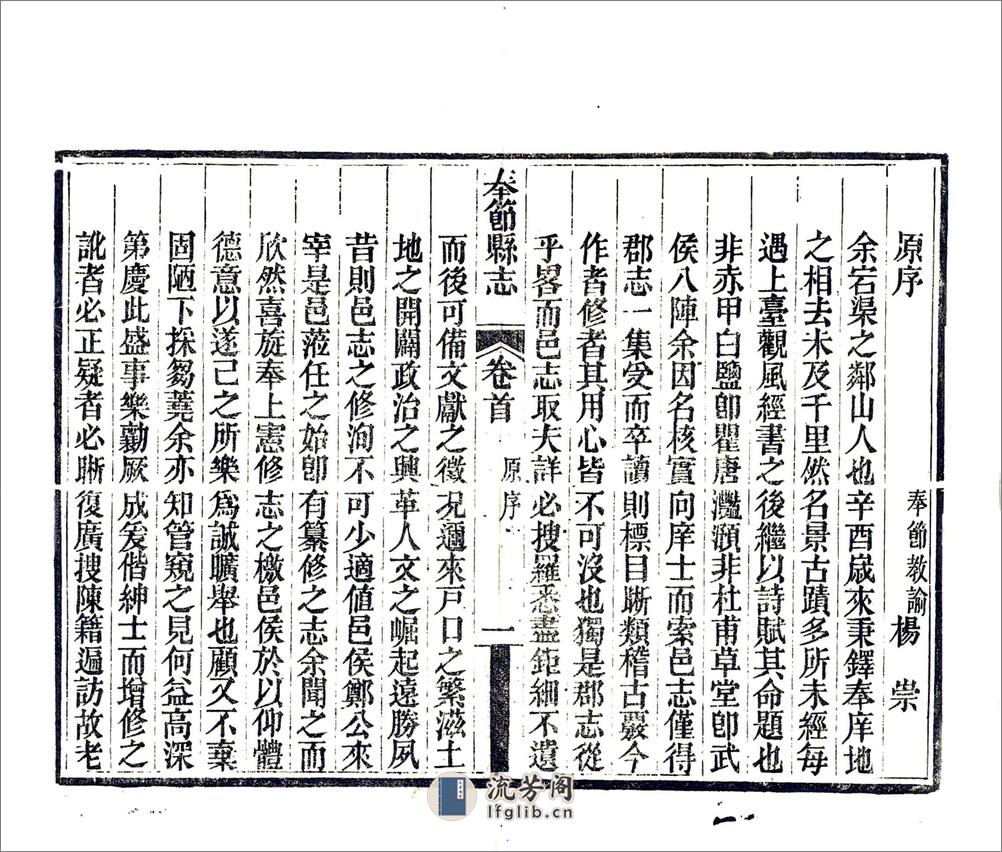 原序
奉節教諭楊崇
余宕渠之鄰山人也辛酉歲來秉鐸奉庠地
之相去未及千里然名景古蹟多所未經每
遇上臺觀風經書之後繼以詩賦其命題也
非赤甲白鹽卽瞿唐灎澦非杜甫草堂卽武
侯八陣余因名核實向庠士而索邑志僅得
郡志一集受而卒讀則標目晣類稽古覈今
作者修者其用心皆不可沒也獨是郡志從
乎畧而邑志取夫詳必搜羅悉盡鉅細不遺
奉節縣志
卷首
原序
一
而後可備文獻之徵况邇來戸口之繁滋土
地之開闢政治之興革人文之崛起遠勝夙
昔則邑志之修洵不可少適值邑侯鄭公來
宰是邑蒞任之始卽有纂修之志余聞之而
欣然喜旋奉上憲修志之檄邑侯於以仰體
德意以遂己之所樂爲誠曠舉也顧又不棄
固陋下採芻蕘余亦知管窺之見何益高深
第慶此盛事樂勷厥成爰偕紳士而增修之
訛者必正疑者必晣復廣搜陳籍遍訪故老
流芳阁
lfglib.cn